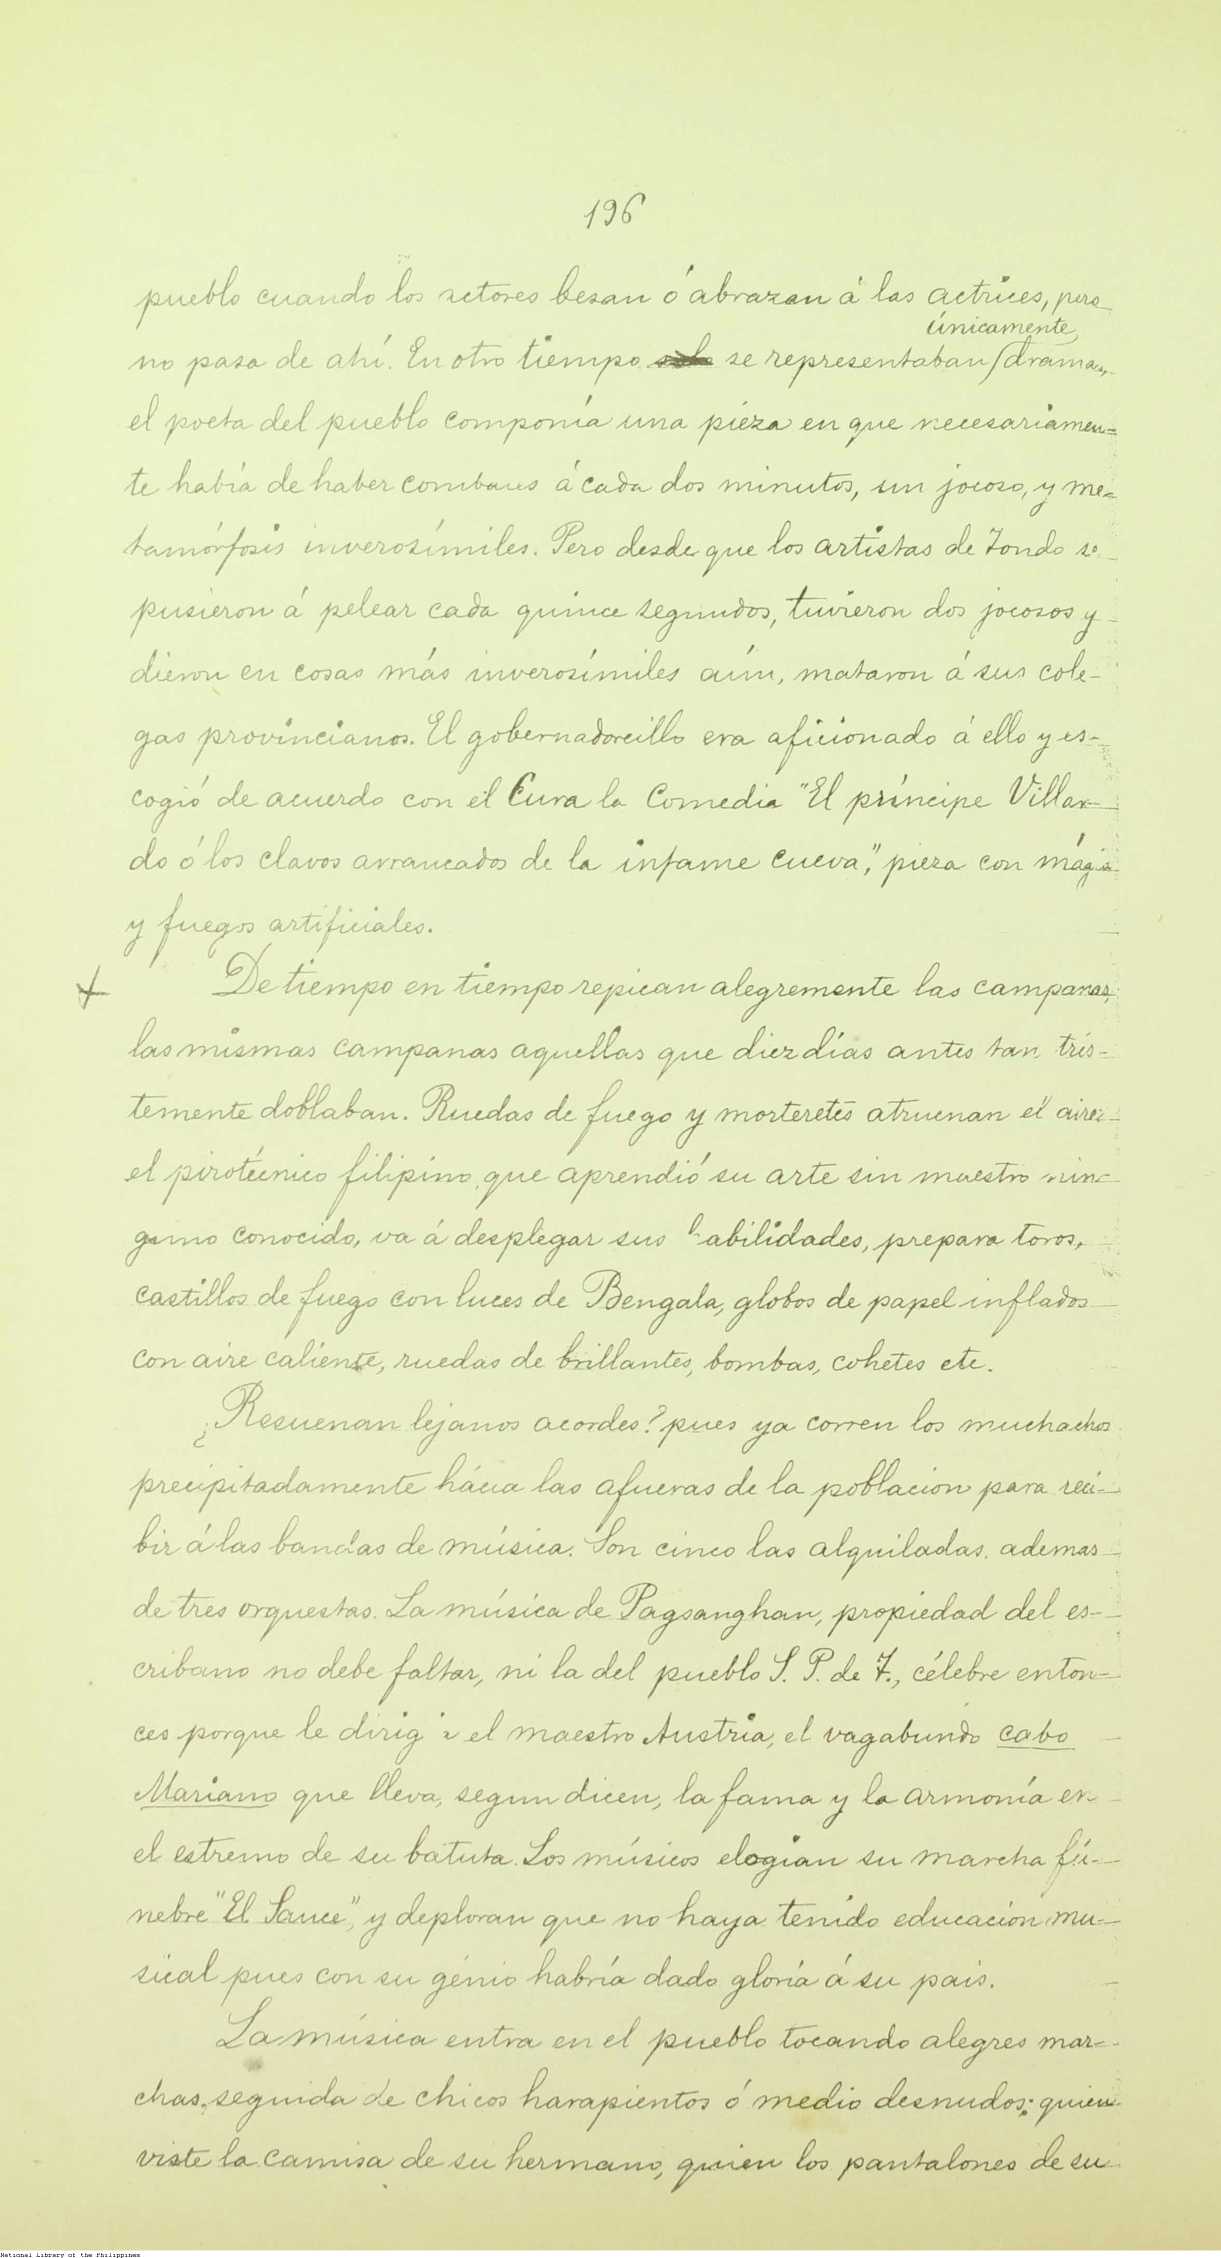 196
pueblo cuando los actores besan ó abrazan á las actrices, pero
únicamente
no pasa de ahí. En otro tiempo solo se representaban dramas,
el poeta del pueblo componía una pieza en que necesariamen=
te había de haber combates á cada dos minutos, un jocoso, y me=
tamórfosis inverosímiles. Pero desde que los artistas de Tondo se
pusieron á pelear cada quince segundos, tuvieron dos jocosos y
dieron en cosas más inverosímiles aún, mataron á sus cole-
gas provincianos. El gobernadorcillo era aficionado á ello y es-
cogió de acuerdo con el Cura la Comedia "El príncipe Villar-
do ó los clavos arrancados de la infame cueva", pieza con mágia
y fuegos artificiales.
De tiempo en tiempo repican alegremente las campanas,
las mismas campanas aquellas que diez días antes tan tris-
temente doblaban. Ruedas de fuego y morteretes atruenan el aire:
el pirotécnico filipino, que aprendió su arte sin maestro nin-
guno conocido, va á desplegar sus habilidades, prepara toros,
castillos de fuego con luces de Bengala, globos de papel inflados
con aire caliente, ruedas de brillantes, bombas, cohetes etc.
¿Resuenan lejanos acordes? pues ya corren los muchachos
precipitadamente hácia las afueras de la poblacion para reci-
bir á las bandas de música. Son cinco las alquiladas, ademas
de tres orquestas. La música de Pagsanghan, propiedad del es-
cribano no debe faltar, ni la del pueblo S. P. de T., célebre enton=
ces porque le dirigía el maestro Austria, el vagabundo cabo
Mariano que lleva, segun dicen, la fama y la armonía en
el estremo de su batuta. Los músicos elogian su marcha fú-
nebre "El Sauce", y deploran que no haya tenido educacion mu-
sical pues con su génio habría dado gloria á su pais.
La música entra en el pueblo tocando alegres mar-
chas, seguida de chicos harapientos ó medio desnudos; quien
viste la camisa de su hermano, quien los pantalones de su
National Library of the Philippines